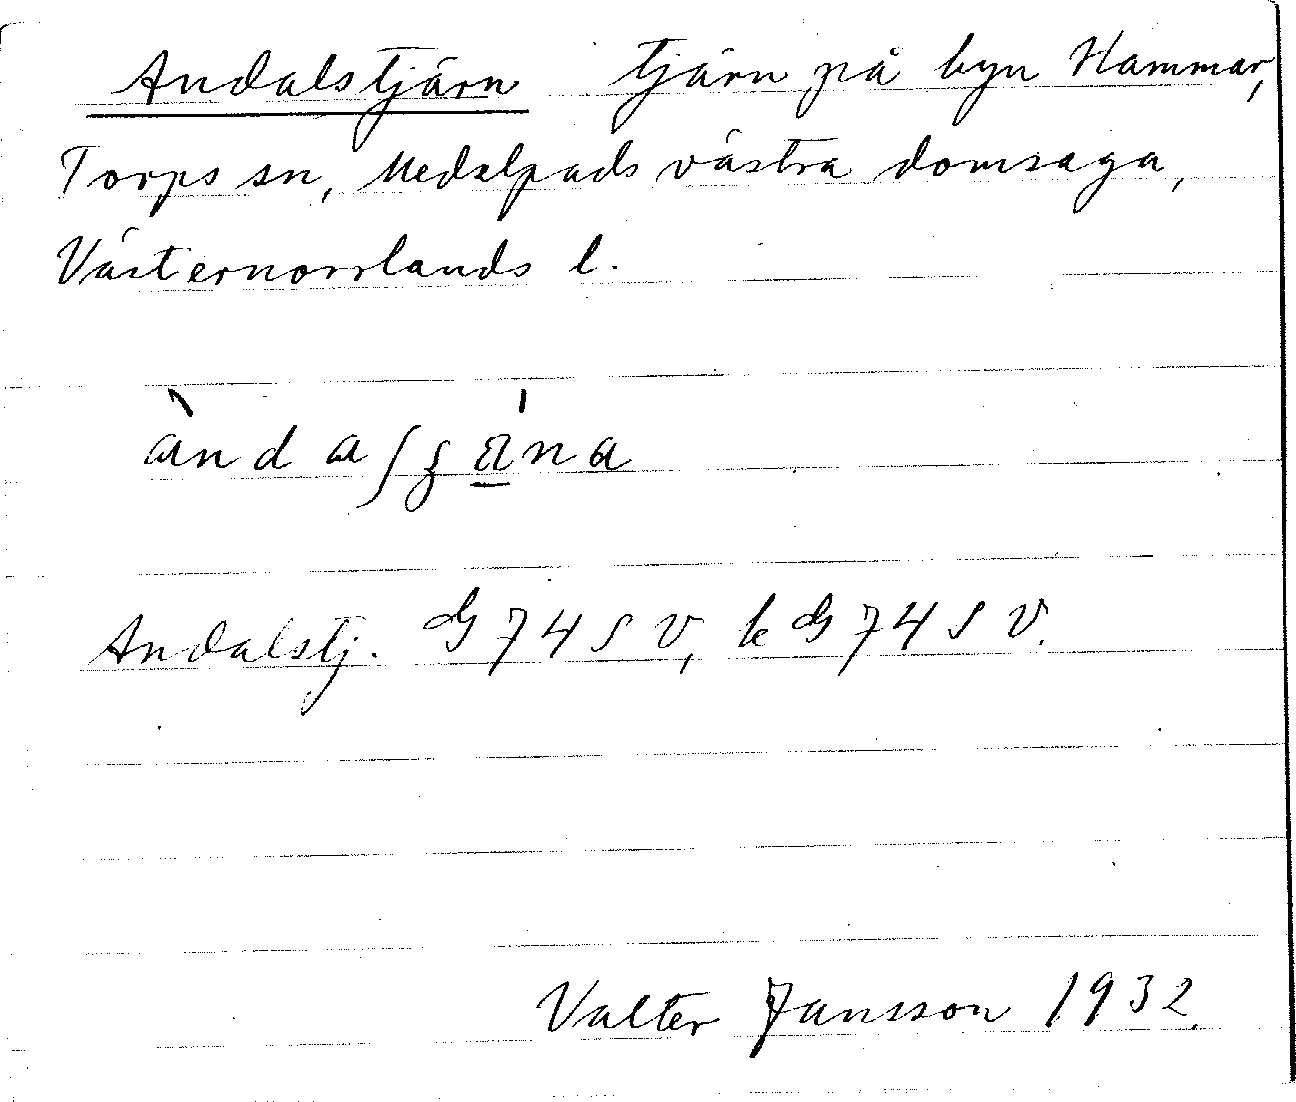 Andalstjärn tjärn på byn Hammar,
Torps sn, Medelpads västra domsaga,
Västernorrlands l.
Andalstj. G 74 S V, k G 74 S V.
Valter Jansson 1932.